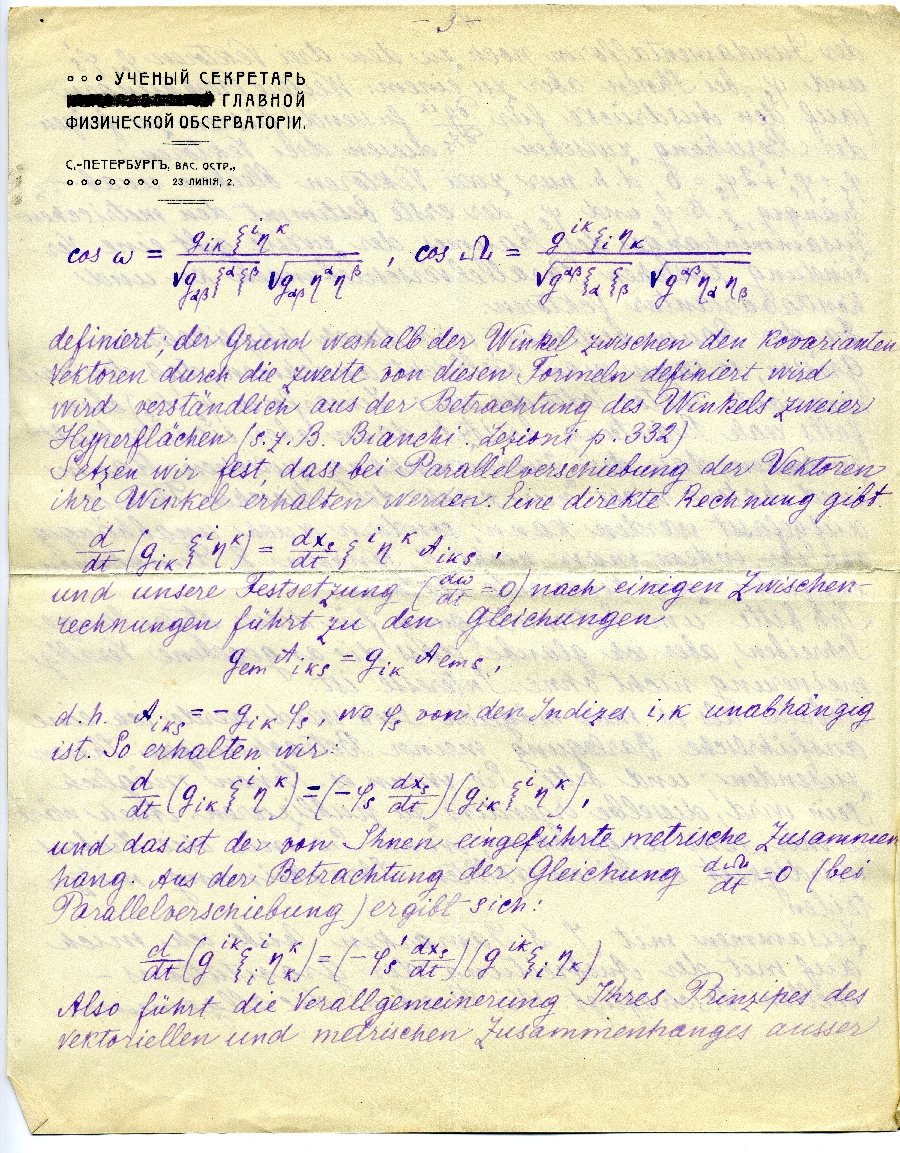 - 3 -
УЧЕНЫЙ СЕКРЕТАРЬ
ГЛАВНОЙ
ФИЗИЧЕСКОЙ ОБСЕРВАТОРІИ.
С.-ПЕТЕРБУРГЪ, ВАС. ОСТР.,
23 ЛИНІЯ, 2.
cos ω = g_{iκ} ξ^i η^κ / √(g_{αβ} ξ^α ξ^β) √(g_{αβ} η^α η^β) , cos Ω = g^{iκ} ξ_i η_κ / √(g^{αβ} ξ_α ξ_β) √(g^{αβ} η_α η_β)
definiert; der Grund weshalb der Winkel zwischen den kovarianten
Vektoren durch die zweite von diesen Formeln definiert wird
wird verständlich aus der Betrachtung des Winkels zweier
Hyperflächen (s. z. B. Bianchi. Lezioni p. 332)
Setzen wir fest, dass bei Parallelverschiebung der Vektoren
ihre Winkel erhalten werden. Eine direkte Rechnung gibt.
d/dt (g_{iκ} ξ^i η^κ) = dx_s/dt ξ^i η^κ A_{iκs} ,
und unsere Festsetzung (dω/dt = 0) nach einigen Zwischen-
rechnungen führt zu den Gleichungen
g_{em} A_{iκs} = g_{iκ} A_{ems} ,
d. h. A_{iκs} = - g_{iκ} φ_s, wo φ_s von den Indizes i, κ unabhängig
ist. So erhalten wir:
d/dt (g_{iκ} ξ^i η^κ) = (- φ_s dx_s/dt) (g_{iκ} ξ^i η^κ) ,
und das ist der von Ihnen eingeführte metrische Zusammen
hang. Aus der Betrachtung der Gleichung dΩ/dt = 0 (bei
Parallelverschiebung) ergibt sich:
d/dt (g^{iκ} ξ_i^i η_κ^κ) = (- φ_s' dx_s/dt) (g^{iκ} ξ_i η_κ)
Also führt die Verallgemeinerung Ihres Prinzipes des
vektoriellen und metrischen Zusammenhanges ausser